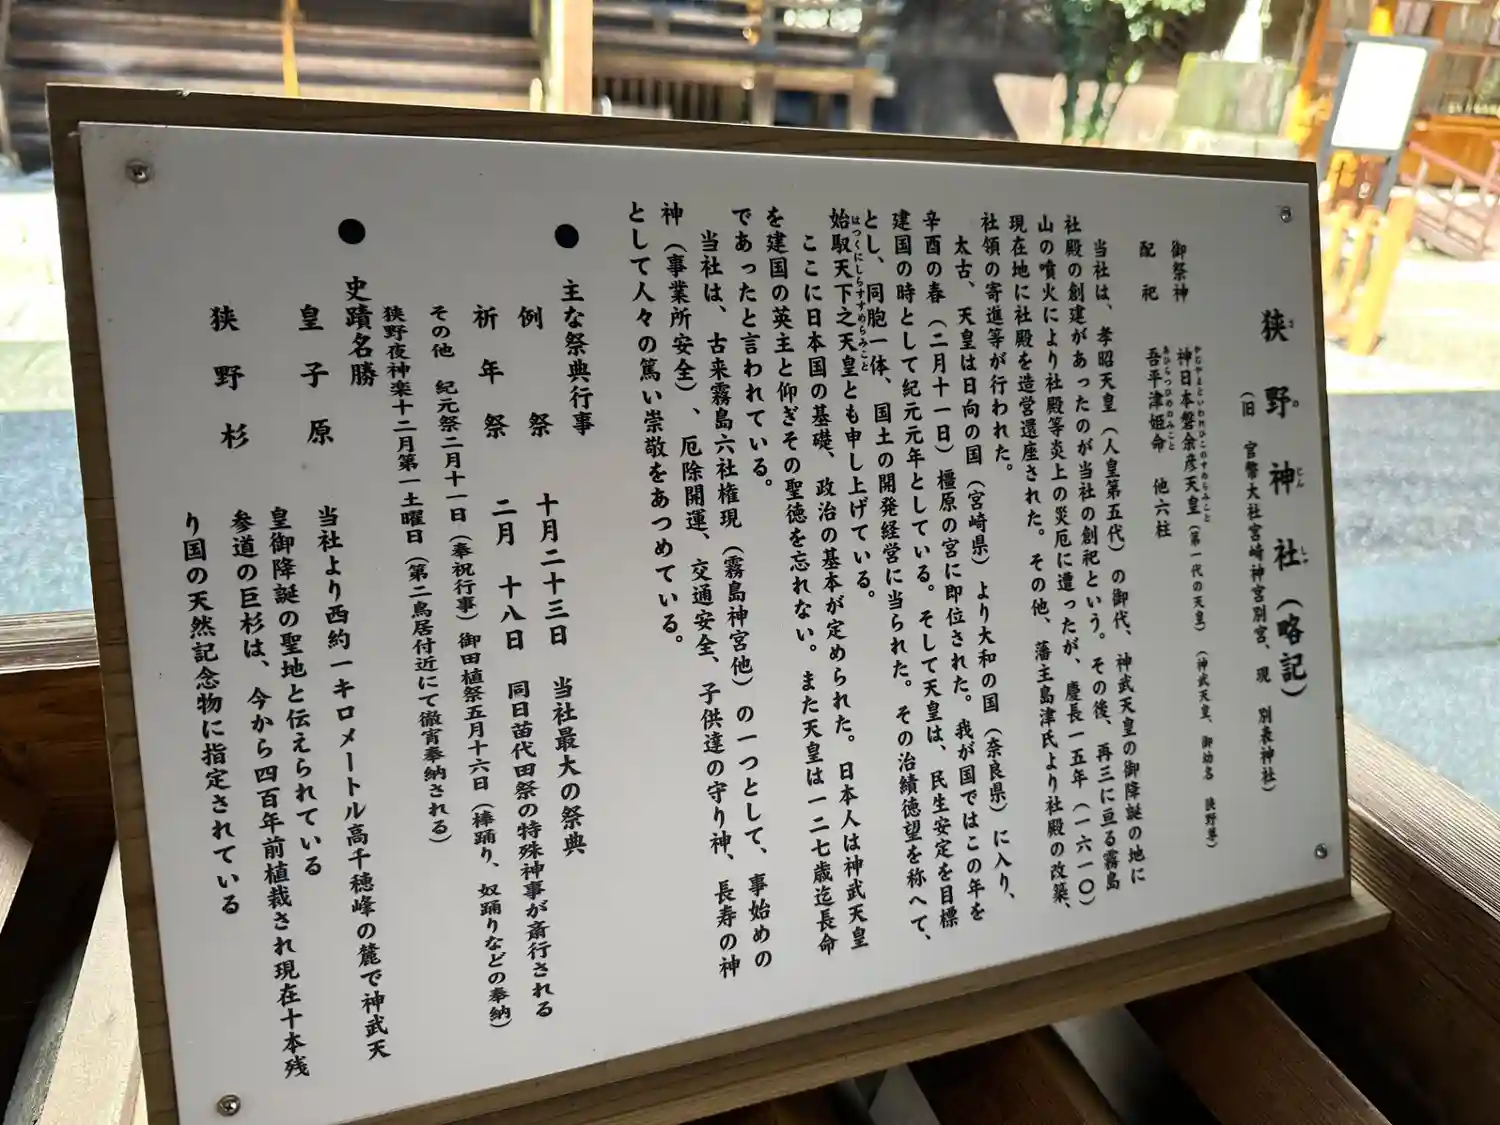 狭野神社（略記）
（旧　官幣大社宮崎神宮別宮、現　別表神社）
御祭神　神日本磐余彦天皇（第一代の天皇）（神武天皇、御幼名　狭野尊）
配祀　吾平津姫命　他六柱
当社は、孝昭天皇（人皇第五代）の御代、神武天皇の御降誕の地に
社殿の創建があったのが当社の創祀という。その後、再三に亘る霧島
山の噴火により社殿等炎上の災厄に遭ったが、慶長一五年（一六一〇）
現在地に社殿を造営還座された。その他、藩主島津氏より社殿の改築、
社領の寄進等が行われた。
太古、天皇は日向の国（宮崎県）より大和の国（奈良県）に入り、
辛酉の春（二月十一日）橿原の宮に即位された。我が国ではこの年を
建国の時として紀元元年としている。そして天皇は、民生安定を目標
とし、同胞一体、国土の開発経営に当られた。その治績徳望を称へて、
始馭天下之天皇とも申し上げている。
ここに日本国の基礎、政治の基本が定められた。日本人は神武天皇
を建国の英主と仰ぎその聖徳を忘れない。また天皇は一二七歳迄長命
であったと言われている。
当社は、古来霧島六社権現（霧島神宮他）の一つとして、事始めの
神（事業所安全）、厄除開運、交通安全、子供達の守り神、長寿の神
として人々の篤い崇敬をあつめている。
●　主な祭典行事
例祭　十月二十三日　当社最大の祭典
祈年祭　二月　十八日　同日苗代田祭の特殊神事が斎行される
その他　紀元祭二月十一日（奉祝行事）御田植祭五月十六日（棒踊り、奴踊りなどの奉納）
狭野夜神楽十二月第一土曜日（第二鳥居付近にて徹宵奉納される）
●　史蹟名勝
皇子原　当社より西約一キロメートル高千穂峰の麓で神武天
皇御降誕の聖地と伝えられている
狭野杉　参道の巨杉は、今から四百年前植裁され現在十本残
り国の天然記念物に指定されている